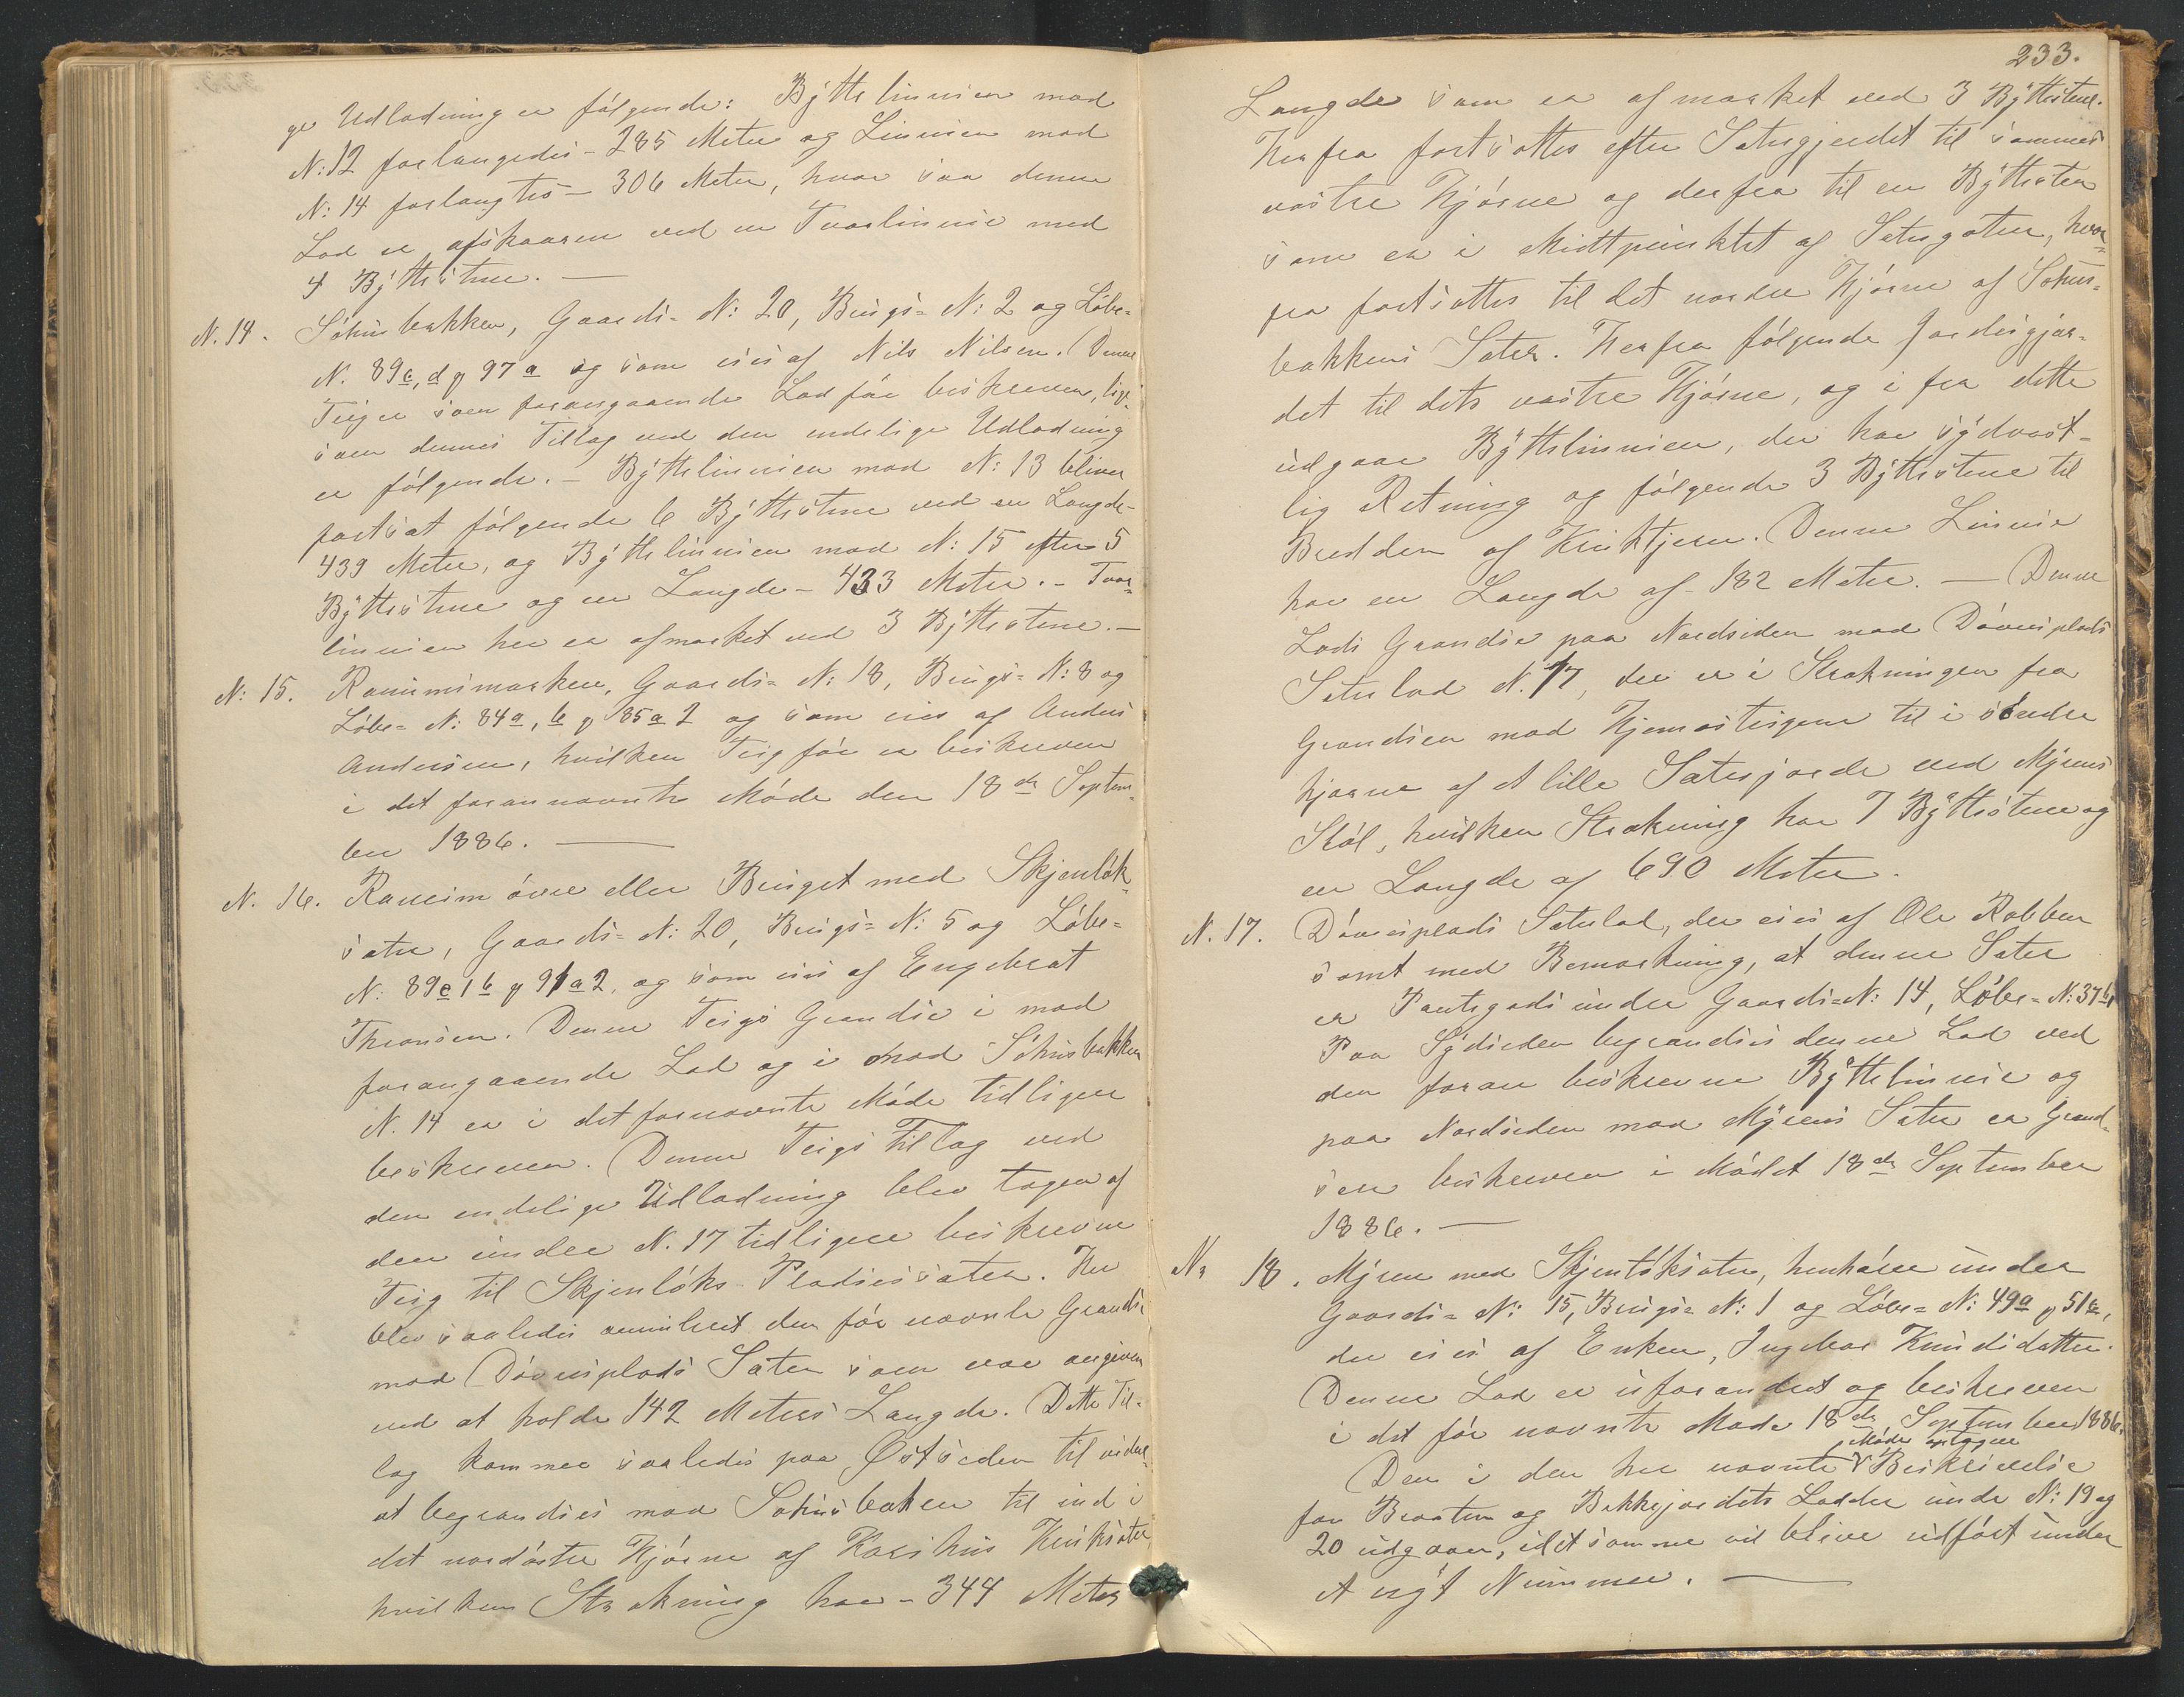 ge Udlodning er følgende: Bÿttelinnien mod
N: 12 forlængedes - 285 Meter og Linnien mod
N: 14 forlængtes - 306 Meter, hvor saa denne
Lod er afskaaren ved en Tværlinnie med
4 Bÿttestene. —
N. 14. Søhusbakken, Gaards- N: 20, Brugs- N: 2 og Løbe-
N. 89c, d og 97a og som eies af Nils Nilsen. Denne
Teig er som foregaaende Lod før beskreven, lige-
som dennes Tillæg ved den endelige Udlodning
er følgende. - Bÿttelinnien mod N: 13 bliver
fortsat følgende 6 Bÿttestene ved en Længde -
439 Meter, og Bÿttelinnien mod N: 15 efter 5
Bÿttestene og en Længde - 433 Meter. - Tvær-
linnien her er afmærket ved 3 Bÿttestene. —
N: 15. Rauimsmarken, Gaards- N: 18, Brugs- N: 8 og
Løbe- N: 84a, b og 85a2 og som eies af Anders
Andersen, hvilken Teig før er beskreven
i det forannævnte Møde den 18de Septem-
ber 1886. —
N. 16. Raueim øvre eller Bruget med Skjenløk-
sæter, Gaards- N: 20, Brugs- N: 5 og Løbe-
N: 89e1b og 91a2, og som eies af Engebret
Thronsen. Denne Teigs Grændse i mod
forangaaende Lod og i mod Søhusbakken
N. 14 er i det fornævnte Møde tidligere
beskreven. Denne Teigs Tillæg ved
den endelige Udlodning blev tagen af
den under N. 17 tidligere beskrevne
Teig til Skjenløks Pladsesæter. Her
blev saaledes annulleret den før nævnte Grændse
mod Døvresplads Sæter som var angiven
ved at holde 142 Meters Længde. Dette Til-
læg kommer saaledes paa Østsiden til videre
at begrændses mod Søhusbaken til ind i
det nordøstre Hjørne af Korshus Kruksæter
hvilken Strækning har - 344 Meter
233.
Længde som er afmærket ved 3 Bÿttestene.
Herfra fortsættes efter Sætergjerdet til sammes
vestre Hjørne og derfra til en Bÿttesten
som er i Midtpunktet af Sætergaten, hvor-
fra fortsættes til det nordre Hjørne af Søhus-
bakkens Sæter. Herfra følgende Jordesgjær-
det til dets vestre Hjørne, og i fra dette
udgaar Bÿttelinnien, der har sÿdvest-
lig Retning og følgende 3 Bÿttestene til
Bredden af Kruktjern. Denne Linnie
har en Længde af - 182 Meter. — Denne
Lods Grændse paa Nordsiden mod Døvresplads
Sæterlod N. 17, der er i Strækningen fra
Grændsen mod Hjemøsteigene til i søndre
hjørne af et lille Sæterjorde ved Mÿrens
Støl, hvilken Strækning har 7 Bÿttestene og
en Længde af 690 Meter.
N. 17. Døvresplads Sæterlod, der eies af Ole Robben
samt med Bemærkning, at denne Sæter
er Pantegods under Gaards- N: 14, Løbe- N: 37b1
Paa Sÿdsiden begrændses denne Lod ved
den foran beskrevne Bÿttelinnie og
paa Nordsiden mod Mÿrens Sæter er Grænd-
sen beskreven i Mødet 18de September
1886. —
N: 18. Mÿren med Skjenløksæter, henhører under
Gaards- N: 15, Brugs- N: 1 og Løbe- N: 49a og 51a,
der eies af Enken, Ingebor Knudsdatter.
Denne Lod er uforandret og beskreven
i det før nævnte Møde 18de September 1886.
Møde optagne
Den i den her nævnte Beskrivelse
for Braaten og Bekkejordets Lodder under N: 19 og
20 udgaar, idet samme vil blive udført under
et nÿt Nummer. —